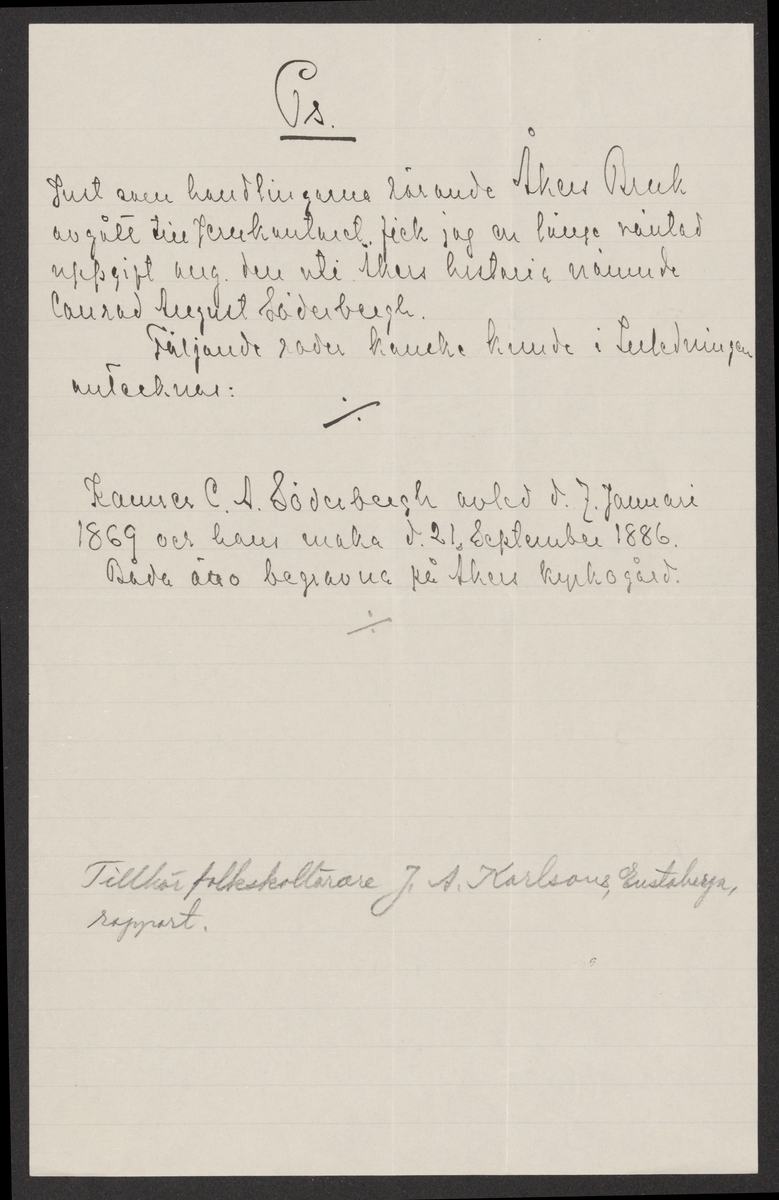 Ps.
Just som handlingarna rörande Åkers Bruk
avgått till Jernkontoret, fick jag en länge väntad
uppgift ang. den uti Åkers historia nämnde
Conrad August Söderbergh.
Följande rader kanske kunde i Inledningen
antecknas:
./.
Kamrer C. A. Söderbergh avled d. 7. Januari
1869 och hans maka d. 21. September 1886.
Båda äro begravna på Åkers kyrkogård.
./.
Tillhör folkskollärare J. A. Karlsons, Enstaberga,
rapport.